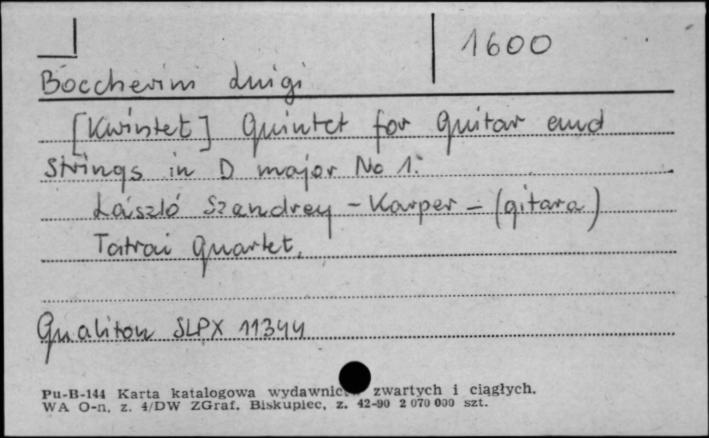 1600
Boccherini Luigi
[Kwintet] Quintet for guitar and
Strings in D major No 1.
László Szendrey - Karper - (gitara)
Tatrai Quartet.
Qualiton SLPX 11344
Pu-B-144 Karta katalogowa wydawnictw zwartych i ciągłych.
WA O-n, z. 4/DW ZGraf. Biskupiec, z. 42-90 2 070 000 szt.